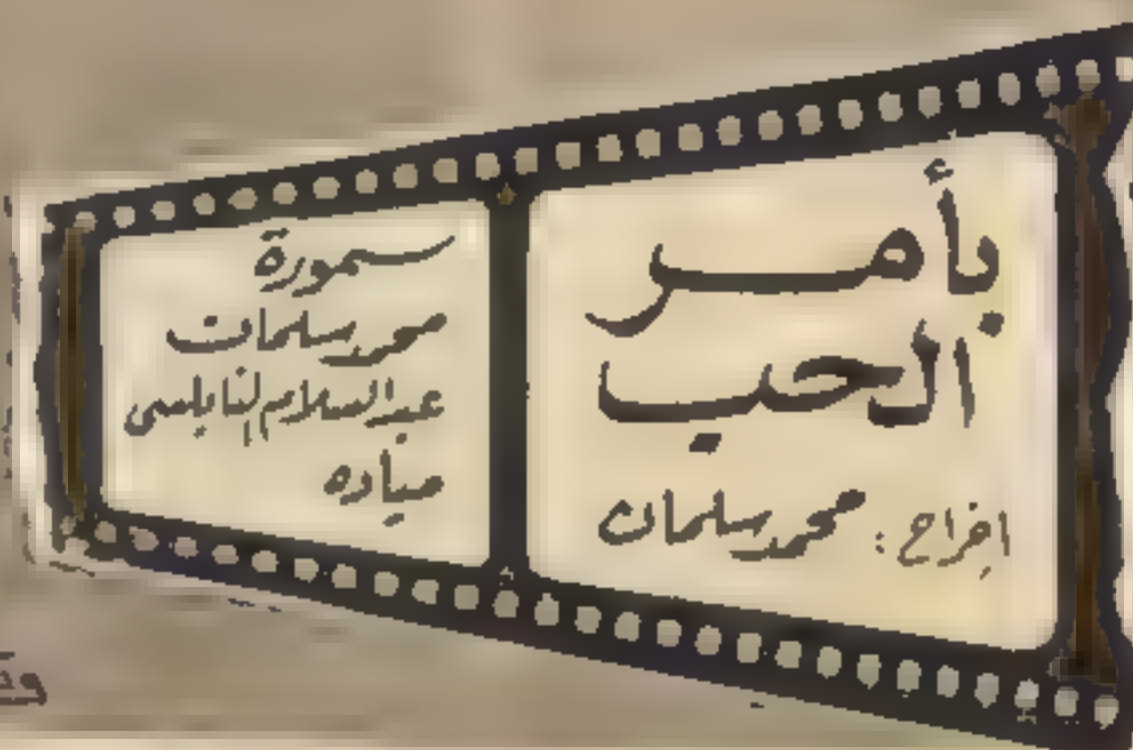 بأمر
الحب
اخراج : محمد سلمان
سمورة
محمد سلمان
عبد السلام النابلسي
مياده